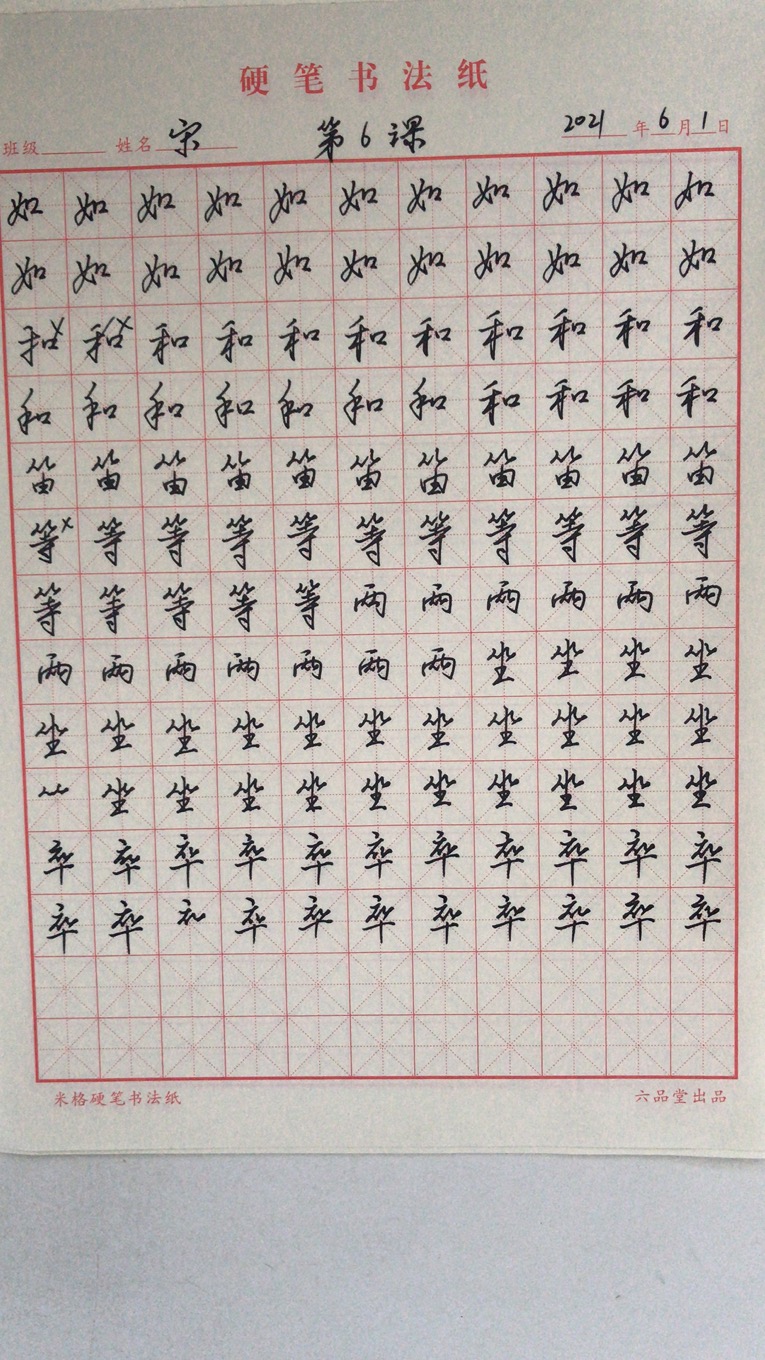 硬笔书法纸
班级 姓名 宋 第6课 2021年6月1日
如如如如如如如如如如如
如如如如如如如如如如如
和和和和和和和和和和
和和和和和和和和和和和
笛笛笛笛笛笛笛笛笛笛笛
等等等等等等等等等等等
等等等等等两两两两两两
两两两两两两两坐坐坐坐
坐坐坐坐坐坐坐坐坐坐坐
坐坐坐坐坐坐坐坐坐坐
卒卒卒卒卒卒卒卒卒卒卒
卒卒卒卒卒卒卒卒卒卒
米格硬笔书法纸 六品堂出品